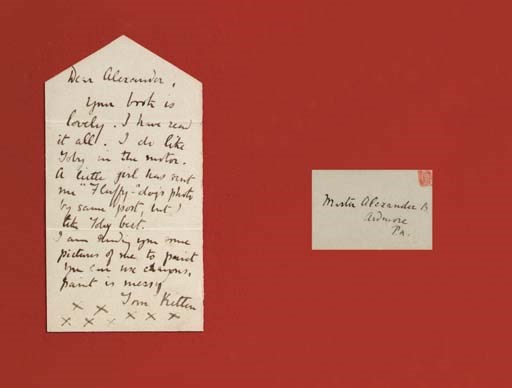 Dear Alexander,
your book is
lovely. I have read
it all. I do like
Toby in the motor.
A little girl has sent
me "Fluffy"-dog's photo
by same post, but I
like Toby best.
I am sending you some
pictures of me to paint
you can use crayons,
paint is messy
Tom Kitten
x x
x x x x x x
Master Alexander
Ardmore
Pa.